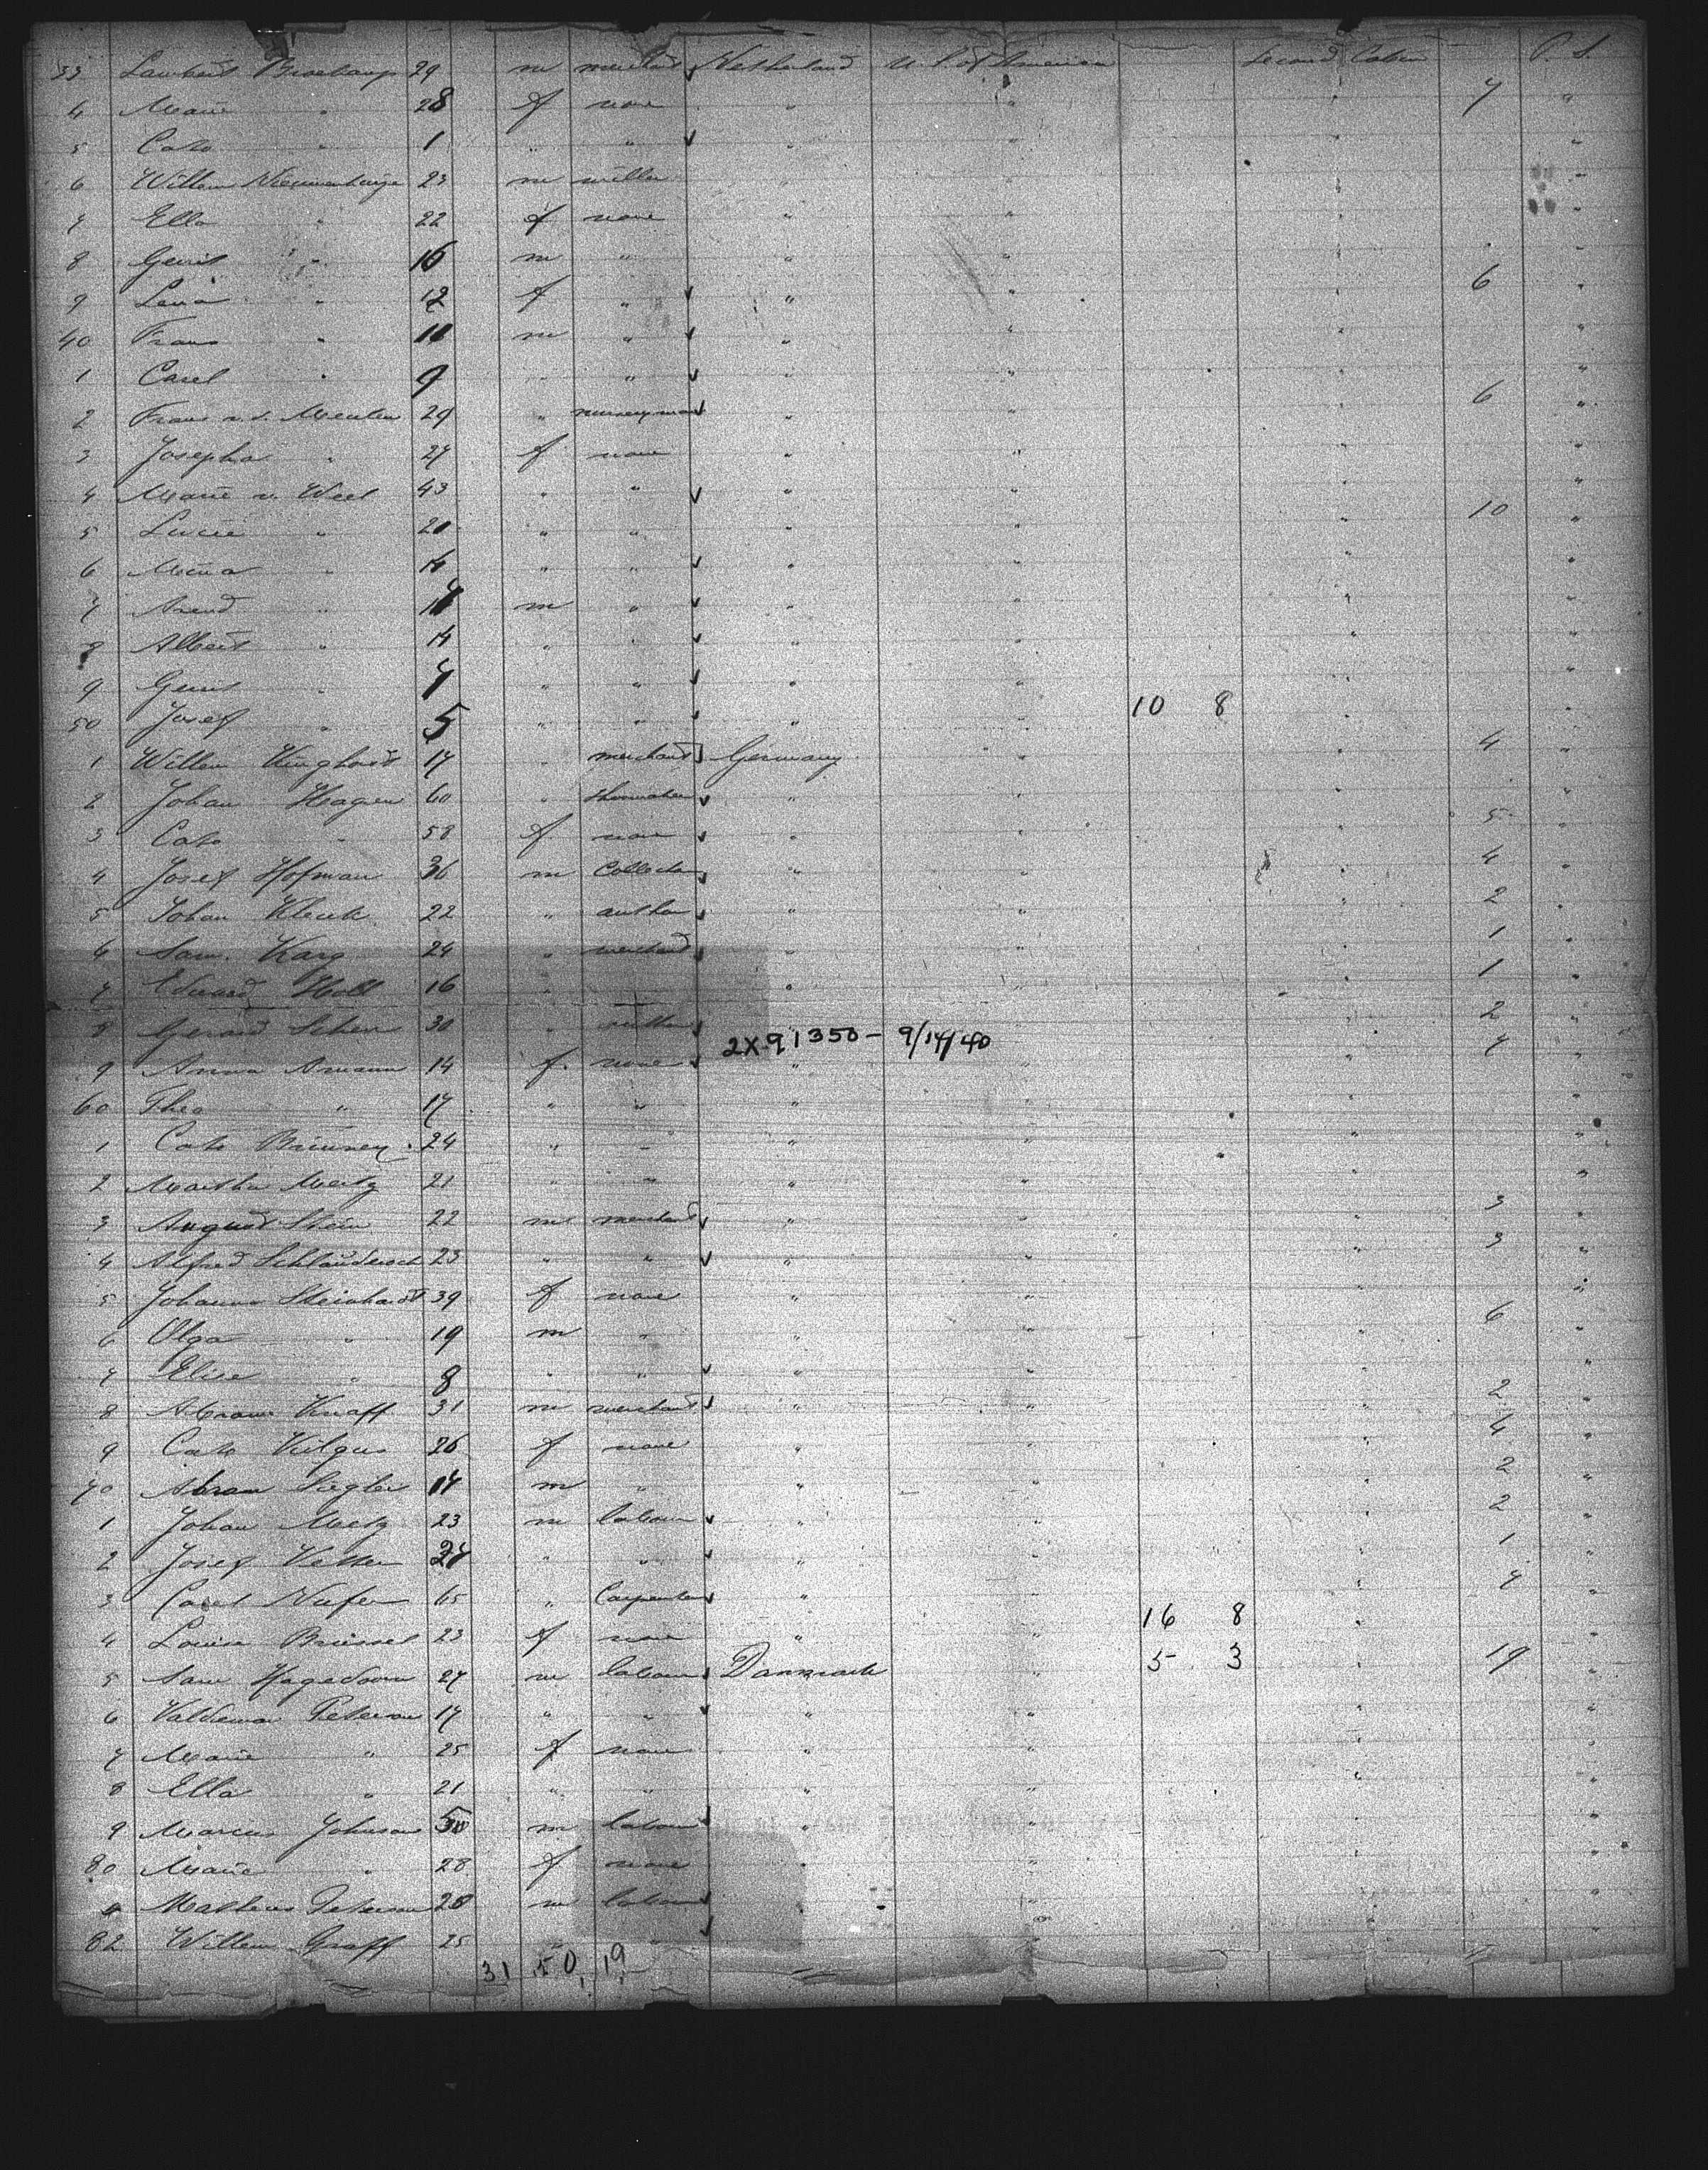 33 Lambert Broekamp 29 m merchant Netherland U. S. of America Second Cabin P. S.
4 Marie " 28 f none " " " 7 "
5 Cato " 1 " " " " " "
6 Willem 23 m miller " " " "
7 Ella " 22 f none " " " "
8 Gerrit " 16 m " " " " "
9 Lena " 12 f " " " " 6 "
40 Frans " 11 m " " " " "
1 Carel " 9 " " " " " "
2 Frans v. d. Meulen 29 " nurseryman " " " 6 "
3 Josepha " 27 f none " " " "
4 Marie v. Weel 43 " " " " " "
5 Lucie " 20 " " " " " 10 "
6 Mina " 14 " " " " " "
7 Arend " m " " " " "
8 Albert " " " " " " "
9 Gerrit " 7 " " " " " "
50 Josef " 5 " " " " 10 8 " "
1 Willem Kinghorst 17 " merchant Germany " " 4 "
2 Johan Hagen 60 " shoemaker " " " "
3 Cato " 58 f none " " " 5 "
4 Josef Hofman 36 m Collector " " " 4 "
5 Johan Kleuk 22 " author " " " 2 "
6 Sam. Karg 24 " merchant " " " 1 "
7 Edward Holl 16 " " " " " 1 "
8 Gerard Scher 30 " miller " " " 2 "
2X-91350 - 9/14/40
9 Anna Amann 14 f. none " " " 7 "
60 Thea " 17 " " " " " "
1 Cato 24 " " " " " "
2 Martha Metz 21 " " " " " "
3 August Stein 22 m merchant " " " 3 "
4 Alfred 23 " " " " " 3 "
5 Johanna Steinhardt 39 f none " " " "
6 Olga " 19 m " " " " 6 "
7 Elise " 8 " " " " " "
8 Abram Knaff 31 m merchant " " " 2 "
9 Cato Kilgus 26 f none " " " 4 "
70 Abram Siegler 17 m " " " " 2 "
1 Johan Metz 23 m labour " " " 2 "
2 Josef Keller " " " " " 1 "
3 Carel Nufer 65 " Carpenter " " " 7 "
4 Louise Brüssel 23 f none " " 16 8 " "
5 Sam Hagedoorn 27 m labour Danmark " 5 3 " 19 "
6 Valdemar Peterson 17 " " " " " "
7 Marie " 25 f none " " " "
8 Ella " 21 " " " " " "
9 Marcus Johnson 50 m labour " " " "
80 Marie " 28 f none " " " "
Mathias Peterson 28 m labour " " " "
82 Willem Graff 25 " " " " " "
31 50 19